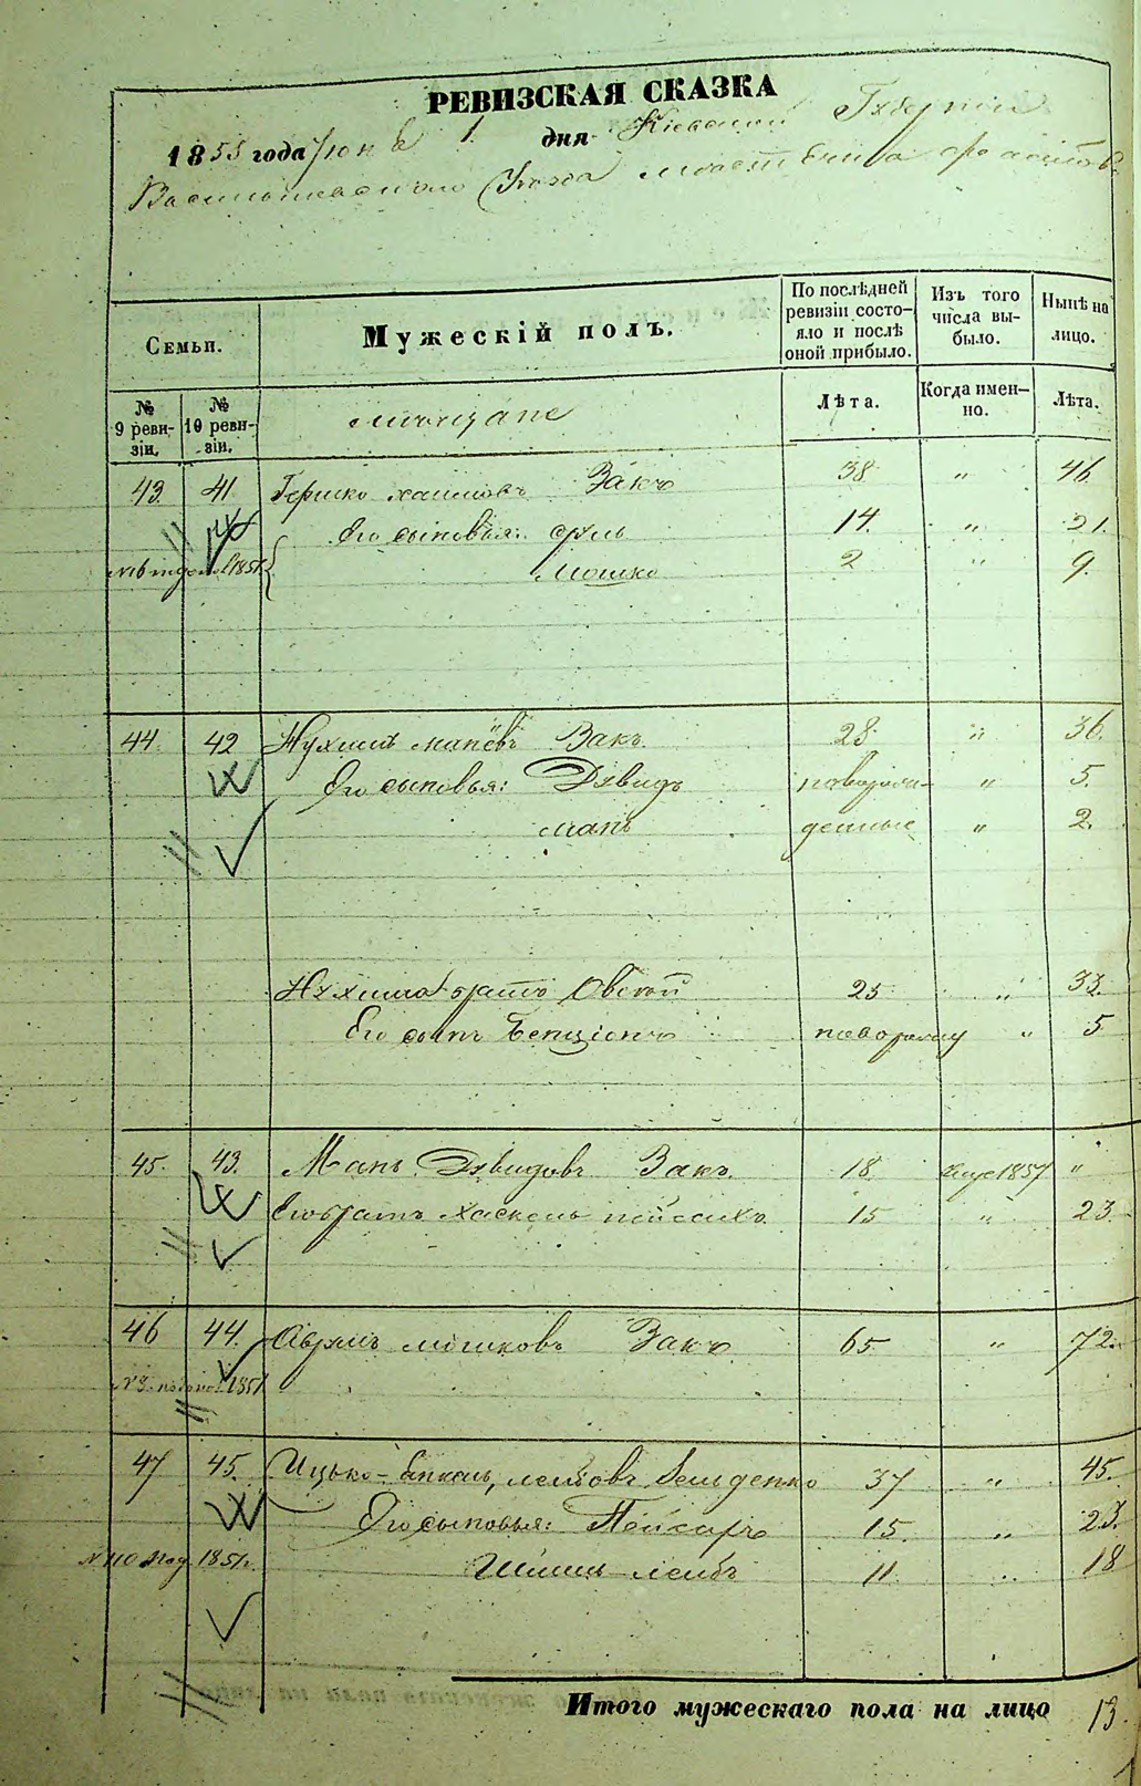 РЕВИЗСКАЯ СКАЗКА
1855 года Іюня 1 дня Кіевской Губерніи
Васильковскаго Уѣзда
Семьи. Мужескій полъ. По послѣдней ревизіи состояло и послѣ оной прибыло. Изъ того числа вы-было. Нынѣ на лицо.
№ 9 реви-зіи. № 10 реви-зіи. Лѣта. Когда имен-но. Лѣта.
43. 41 Гершко Хаимовъ Закъ 38 " 46.
Его сыновья: Сруль 14. " 21.
Мошко 2 " 9.
44. 42 Нухимъ Маневъ Закъ. 28 " 36.
Его сыновья: Дувидъ новорож- " 5.
Манъ денные " 2.
Нухима братъ Овсей 25 " 33.
Его сынъ Бенціонъ " 5
45. 43. Манъ Дувидовъ Закъ. 18. 1857 "
Его братъ Хаскель Пейсахъ. 15 " 23.
46 44. Аврумъ Мошковъ Закъ 65 " 72.
1851
47 45. Ицько- Лейбовъ 37 " 45.
Его сыновья: 15. " 23.
1851г. Лейбъ 11. " 18
Итого мужескаго пола на лицо 13.